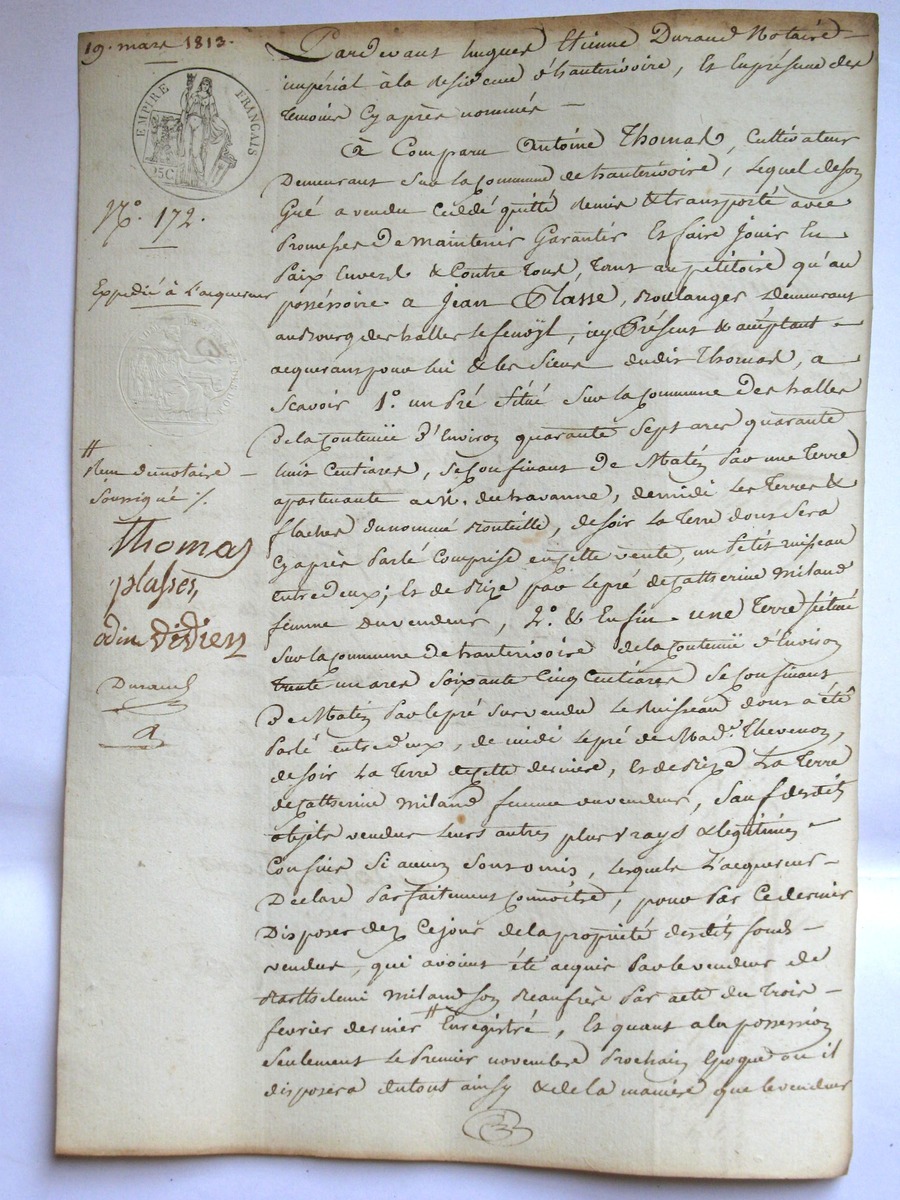 19. mars 1813.
EMPIRE FRANÇAIS
25 C.
N.º 172.
Expedié à l'acquereur
#
Reçu dunotaire
soussigné ./.
Thomas
plasses,
Didier
Durand
Pardevant hugues Etienne Durand Notaire
impérial à la residence d'hauterivoire, Et Enpresence des
temoins Cy après nommés —
A Comparu Antoine Thomas, Cultivateur
Demeurant Sur la Commune de hauterivoire, lequel deson
Gré a vendu Ceddé quitté remis & transporté avec
Promesses De maintenir Garantir Et faire Jouir En
Paix Envers & Contre tous, tant au petitoire qu'au
posséssoire a Jean Plasse, Boulanger Demeurant
au Bourg des halles le fenoÿl, icy Présent & acceptant
acquerant pour lui & les Siens dudit Thomas, a
Scavoir 1.º un Pré Situé Sur la Commune des halles
De la Contenüe D'Environ quarante Sept ares quarante
huit Centiares, Se Confinant De Matin Par une Terre
apartenante a M. du havanne, de midi Les Terres &
flaches dunommé Bouteille, de soir La terre dont Sera
Cy après Parlé Comprise en cette vente, un Petit ruisseau
entre deux; Et de Bize par le pré de Catherine Miland
femme du vendeur, 2.º & Enfin une Terre Situé
Sur la Commune De hauterivoire De la Contenüe D'Environ
trente un ares Soixante Cinq Centiares Se Confinant
De Matin Par le pré Sus vendu Le Ruisseau dont a été
Parlé entre deux, de midi Le pré de Mad.e Thevenon,
de soir La Terre de cette derniere, Et de Bize La Terre
de Catherine Miland femme du vendeur, Sauf desdits
objets vendus Leurs autres plus vrays & legitimes
Confins Si aucuns Sont omis, lesquels L'acquereur
Declare Parfaitement Connoitre, pour Par Ce dernier
Disposer dez Ce jour de la propriété desdits fonds
vendus, qui avoient été acquis Par le vendeur de
Barthelemi Miland Son Beaufrère Par acte du trois
fevrier dernier # Enregistré, Et quant a la possession
Seulement le Premier novembre Prochain Epoque ou il
disposera du tout ainsy & de la maniere que le vendeur